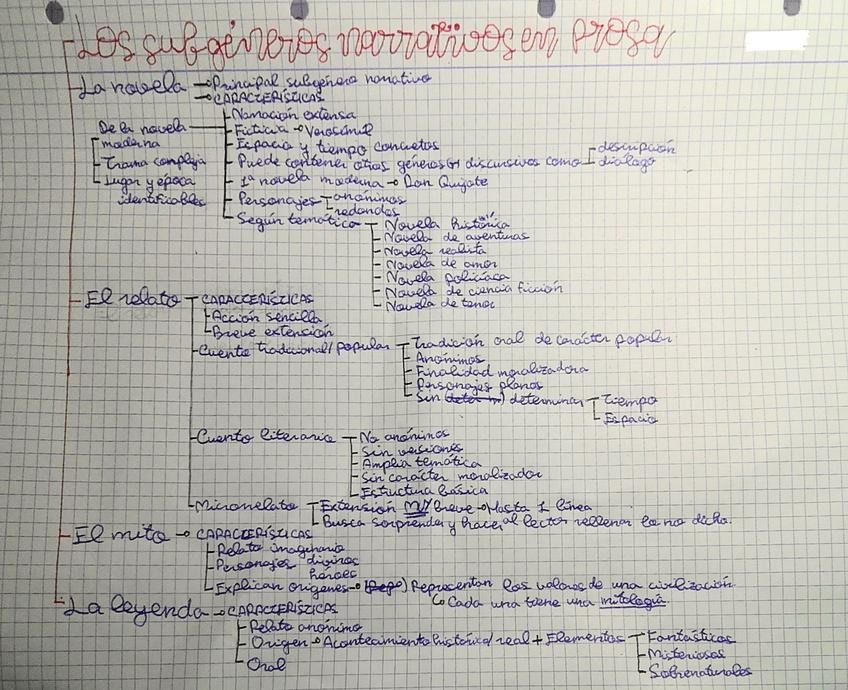 Los subgéneros narrativos en prosa
La novela → Principal subgénero narrativo
→ CARACTERÍSTICAS
Narración extensa
De la novela moderna
Trama compleja
Lugar y época identificables
Ficticia → Verosímil
Espacio y tiempo concretos
Puede contener otros géneros discursivos como
descripción
diálogo
1ª novela moderna → Don Quijote
Personajes
anónimos
redondos
Según temática
Novela histórica
Novela de aventuras
Novela realista
Novela de amor
Novela policíaca
Novela de ciencia ficción
Novela de terror
El relato
CARACTERÍSTICAS
Acción sencilla
Breve extensión
Cuento tradicional/popular
Tradición oral de carácter popular
Anónimos
Finalidad moralizadora
Personajes planos
Sin determinar
Tiempo
Espacio
Cuento literario
No anónimos
Sin versiones
Amplia temática
Sin carácter moralizador
Estructura básica
Microrrelato
Extensión MUY breve → Hasta 1 línea
Busca sorprender y hacer al lector rellenar lo no dicho.
El mito → CARACTERÍSTICAS
Relato imaginario
Personajes divinos
héroes
Explican orígenes → Representan los valores de una civilización
Cada una tiene una mitología
La leyenda → CARACTERÍSTICAS
Relato anónimo
Origen → Acontecimiento histórico/real + Elementos
Fantásticos
Misteriosos
Sobrenaturales
Oral